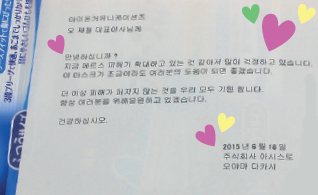 아이온커뮤니케이션즈
오 재철 대표이사님께
안녕하십니까?
지금 메르스 피해가 확대하고 있는 것 같아서 많이 걱정하고 있습니다.
이 마스크가 조금이라도 여러분의 도움이 되면 좋겠습니다.
더 이상 피해가 퍼지지 않는 것을 우리 모두 기원 합니다.
항상 여러분을 위해응원하고 있겠습니다.
건강하십시오.
2015 년 6 월 16 일
주식회사 아시스토
오야마 다카시